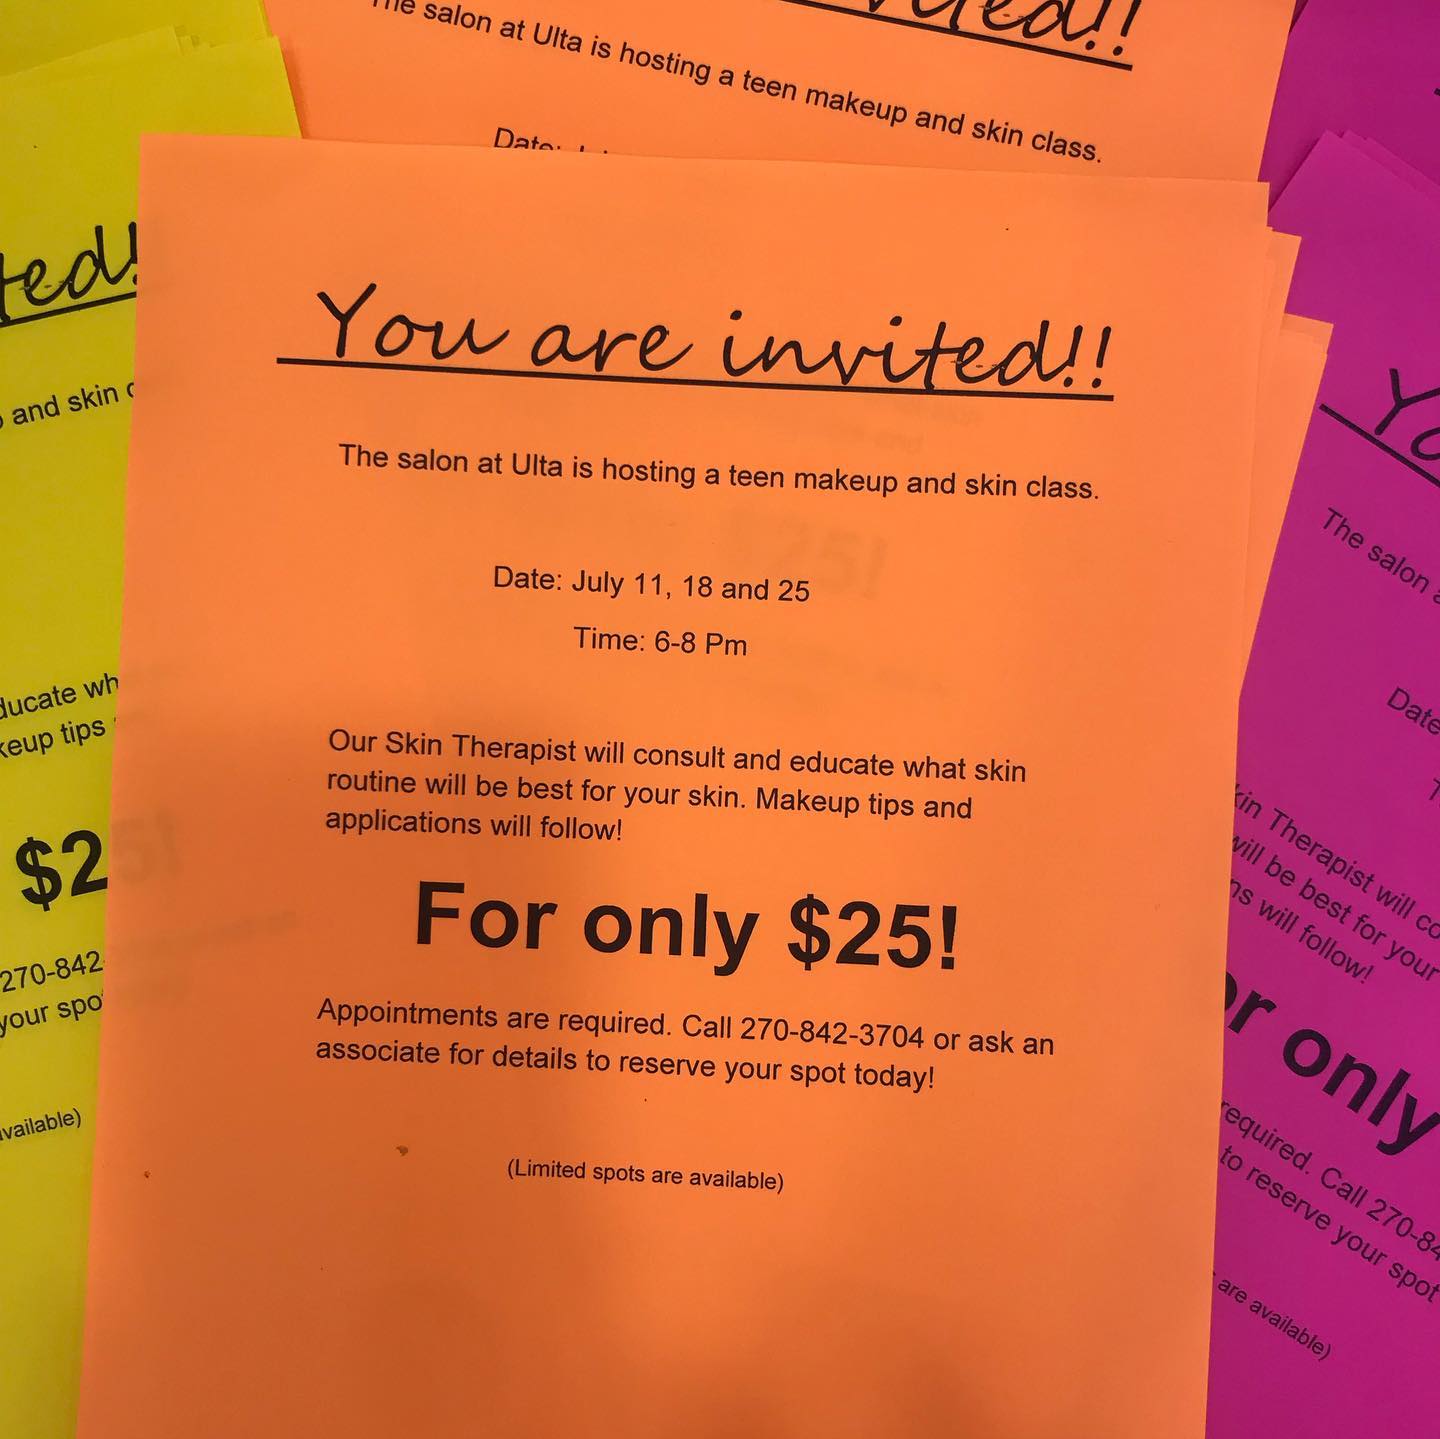 ited!!
The salon at Ulta is hosting a teen makeup and skin class.
Date:
You are invited!!
The salon at Ulta is hosting a teen makeup and skin class.
Date: July 11, 18 and 25
Time: 6-8 Pm
Our Skin Therapist will consult and educate what skin
routine will be best for your skin. Makeup tips and
applications will follow!
For only $25!
Appointments are required. Call 270-842-3704 or ask an
associate for details to reserve your spot today!
(Limited spots are available)
ted!
and skin
ducate wh
keup tips
$2
270-842-
your spo
available)
Yo
The salon
Date
kin Therapist will co
will be best for your
ns will follow!
or only
required. Call 270-84
to reserve your spot
are available)